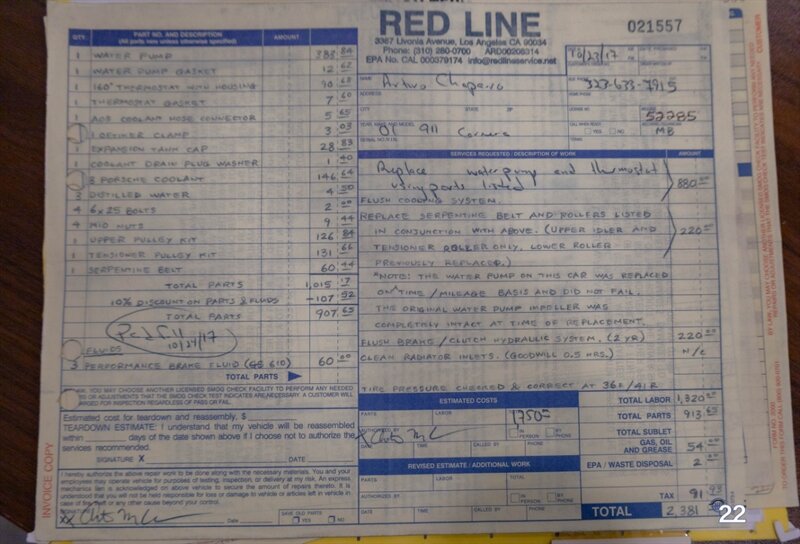 RED LINE
021557
3387 Livonia Avenue, Los Angeles CA 90034
Phone: (310) 280-0700 ARD00206314
EPA No. CAL 000379174 info@redlineservice.net
QTY. PART NO. AND DESCRIPTION AMOUNT
(All parts new unless otherwise specified)
1 WATER PUMP 383 84
1 WATER PUMP GASKET 12
1 160° THERMOSTAT WITH HOUSING
1 THERMOSTAT GASKET 7 60
1 AOS COOLANT HOSE CONNECTOR 5 65
1 OETIKER CLAMP 3 03
1 EXPANSION TANK CAP 28 83
1 COOLANT DRAIN PLUG WASHER 1 40
3 PORSCHE COOLANT 146 64
DISTILLED WATER 4 50
4 6x25 BOLTS 2 00
4 M10 NUTS 9 44
1 UPPER PULLEY KIT 126 84
1 TENSIONER PULLEY KIT 131 66
1 SERPENTINE BELT 60 44
TOTAL PARTS 1,015 17
10% DISCOUNT ON PARTS & FLUIDS -107 52
TOTAL PARTS 907 65
Pd full
10/24/17
FLUIDS
3 PERFORMANCE BRAKE FLUID (GS 610) 60 00
TOTAL PARTS
10/23/17
NAME Arturo Chaparro
323-633-7915
ADDRESS
CITY STATE ZIP
YEAR, MAKE AND MODEL 01 911 Carrera
52285
YES NO MB
SERVICES REQUESTED / DESCRIPTION OF WORK AMOUNT
Replace water pump and thermostat
using parts listed 880 00
FLUSH COOLING SYSTEM.
REPLACE SERPENTINE BELT AND ROLLERS LISTED
IN CONJUNCTION WITH ABOVE. (UPPER IDLER AND 220 00
TENSIONER ROLLER ONLY, LOWER ROLLER
PREVIOUSLY REPLACED.)
*NOTE: THE WATER PUMP ON THIS CAR WAS REPLACED
ON A TIME / MILEAGE BASIS AND DID NOT FAIL.
THE ORIGINAL WATER PUMP IMPELLER WAS
COMPLETELY INTACT AT TIME OF REPLACEMENT.
FLUSH BRAKE / CLUTCH HYDRAULIC SYSTEM. (2 YR) 220 00
CLEAN RADIATOR INLETS. (GOODWILL 0.5 HRS.) N/C
TIRE PRESSURE CHECKED & CORRECT AT 36F/41R
YOU MAY CHOOSE ANOTHER LICENSED SMOG CHECK FACILITY TO PERFORM ANY
REPAIRS OR ADJUSTMENTS THAT THE SMOG CHECK TEST INDICATES ARE NECESSARY. A CUSTOMER
Estimated cost for teardown and reassembly, $
TEARDOWN ESTIMATE: I understand that my vehicle will be reassembled
within days of the date shown above if I choose not to authorize the
services recommended.
SIGNATURE X DATE
I hereby authorize the above repair work to be done along with the necessary materials. You and your
employees may operate vehicle for purposes of testing, inspection, or delivery at my risk. An express
mechanic's lien is acknowledged on above vehicle to secure the amount of repairs thereto. It is
understood that you will not be held responsible for loss or damage to vehicle or articles left in vehicle in
case of fire, theft or any other cause beyond your control.
Date SAVE OLD PARTS YES NO
ESTIMATED COSTS
PARTS LABOR 1750 00
AUTHORIZED BY IN PERSON BY PHONE
DATE TIME CALLED BY PHONE
REVISED ESTIMATE / ADDITIONAL WORK
PARTS LABOR TOTAL
AUTHORIZED BY IN PERSON BY PHONE
DATE TIME CALLED BY PHONE
TOTAL LABOR 1,320 00
TOTAL PARTS 913 65
TOTAL SUBLET
GAS, OIL AND GREASE 54 00
EPA / WASTE DISPOSAL 2
TAX 91
TOTAL 2,381
INVOICE COPY
22